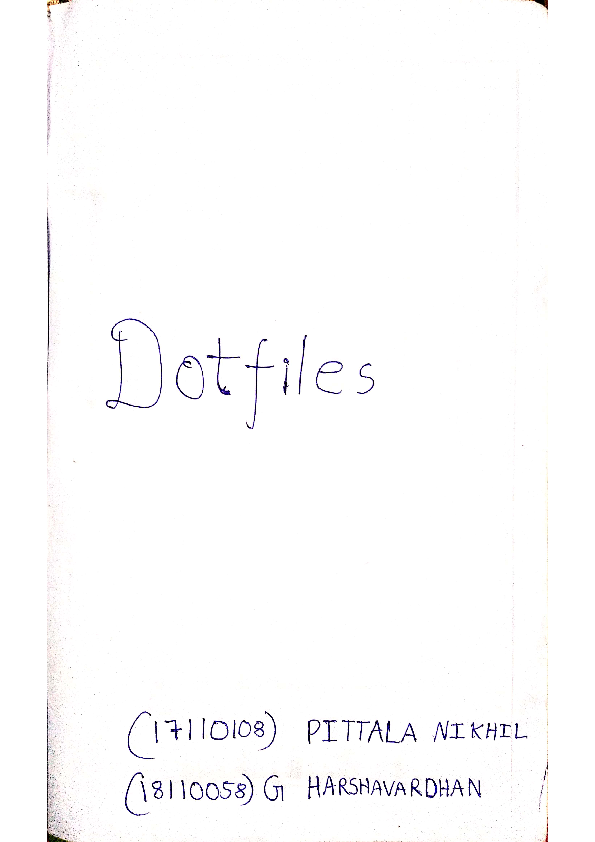 Dotfiles
(17110108) PITTALA NIKHIL
(18110058) G HARSHAVARDHAN